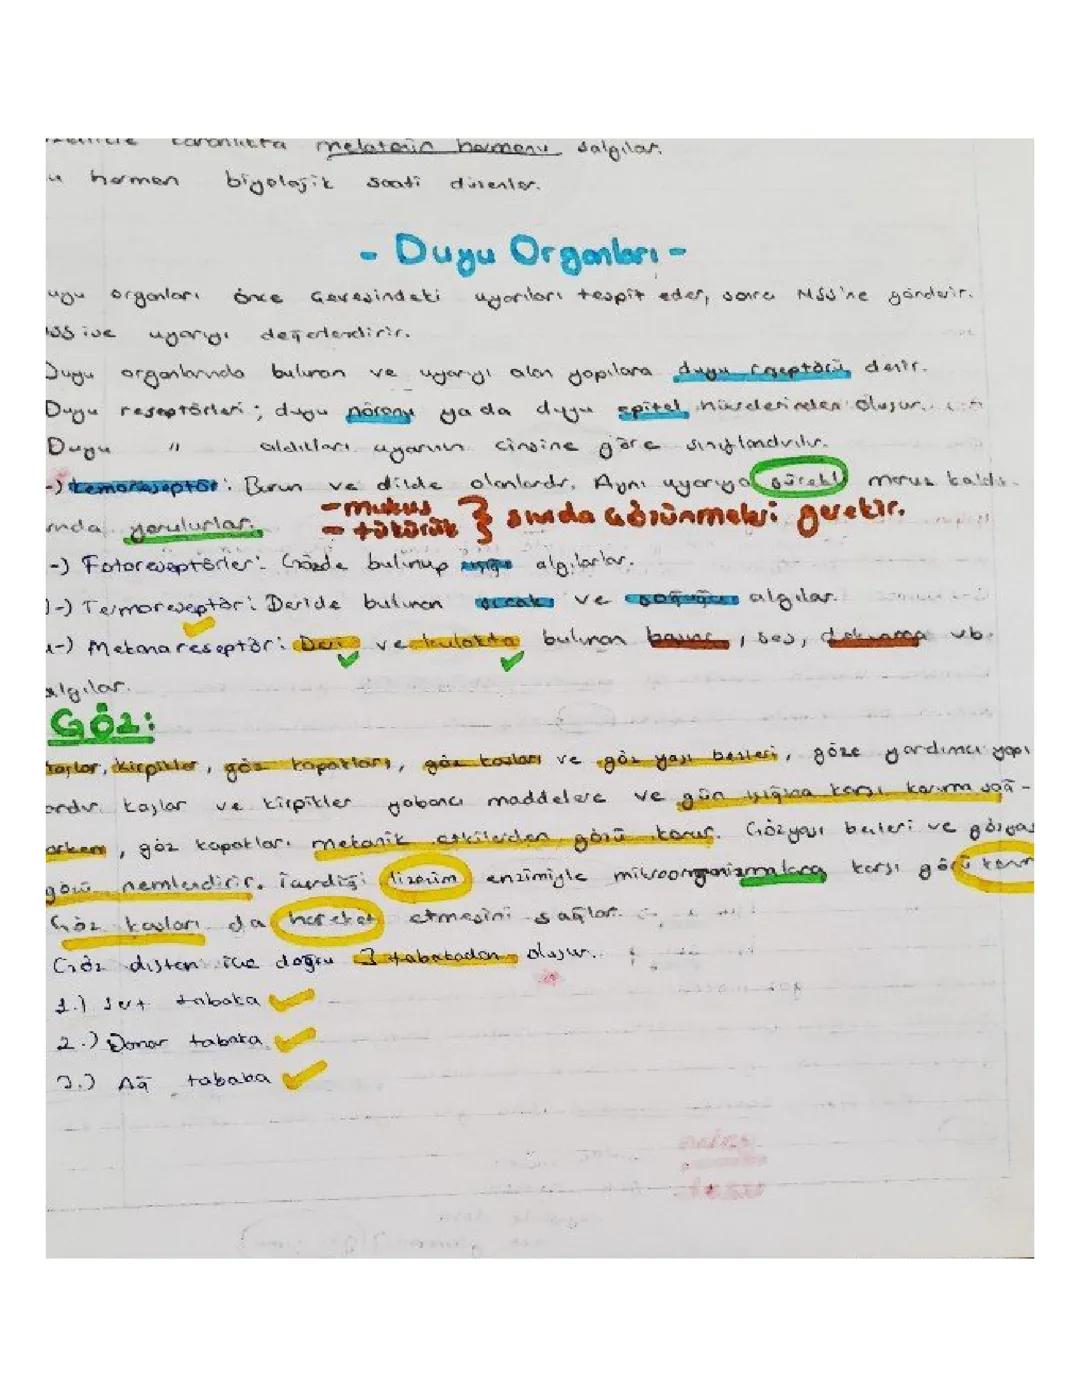 karanlıkta melatonin hormonu salgılar.
hormon biyolojik saati düzenler.
- Duyu Organları -
uyu organları önce çevresindeki uyarıları tespit eder, sonra MSS'ne gönderir.
SS ise uyarıyı değerlendirir.
Duyu organlarında bulunan ve uyarıyı alan yapılara duyu reseptörü denir.
Duyu reseptörleri; duyu nöronu ya da duyu epitel hücrelerinden oluşur.
Duyu " aldıkları uyarının cinsine göre sınıflandırılır.
-) Kemoreseptör: Burun ve dilde olanlardır. Aynı uyarıya sürekli maruz kaldı
ında yorulurlar. - mukus
- tükürük } sıvıda çözünmeleri gerekir.
-) Fotoreseptörler: Gözde bulunup ışığı algılarlar.
-) Termoreseptör: Deride bulunan sıcak ve soğuğu algılar.
-) Mekanareseptör: Deri ve kulakta bulunan basınç, ses, dokunma vb.
algılar.
Göz:
kaşlar, kirpikler, göz kapakları, göz kasları ve göz yaşı bezleri, göze yardımcı yapı
ardır. Kaşlar ve kirpikler yabancı maddelere ve gün ışığına karşı koruma sağ-
arken, göz kapakları mekanik etkilerden gözü korur. Gözyaşı bezleri ve gözyaş
gözü nemlendirir. İçerdiği lizozim enzimiyle mikroorganizmalara karşı gözü korur
Göz kasları da hareket etmesini sağlar.
Göz dıştan içe doğru 3 tabakadan oluşur.
1.) Sert tabaka
2.) Damar tabaka
3.) Ağ tabaka